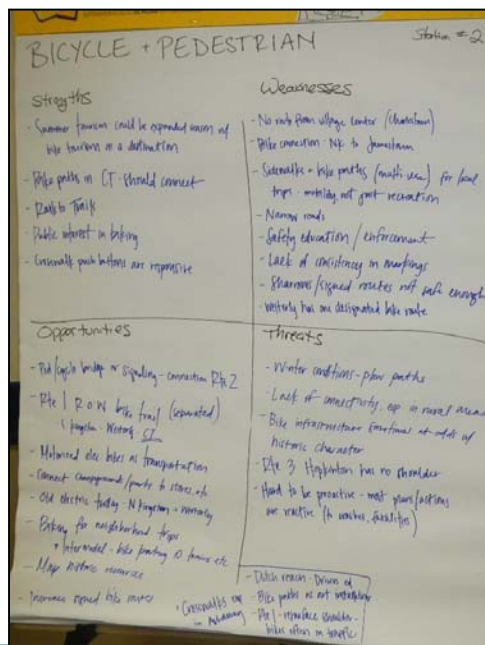 BICYCLE + PEDESTRIAN
Station #2
Stregths
- Summer tourism could be expanded season w/
bike tourism as a destination
- Bike paths in CT - should connect
- Rails to Trails
- Public interest in biking
- Crosswalk push buttons are responsive
Weaknesses
- No route from village center (
- Bike connection - NK to Jamestown
- Sidewalks + bike paths (multi-use) for local
trips - mobility, not just recreation
- Narrow roads
- Safety education / enforcement
- Lack of consistency in markings
- Sharrows/signed routes not safe enough
- Westerly has one designated bike route
Opportunities
- Ped/cycle bridge or signaling - connection Rte 2
- Rte 1 ROW bike trail (separated)
Kingston - Westerly CT
- Motorized elec bikes as transportation
- Connect campgrounds/parks to stores, etc.
- Old electric trolley - N Kingston - Westerly
- Biking for neighborhood trips
+ Intermodal - bike parking @ trains etc
- Map historic resources
- Increase signed bike routes
• Crosswalks
in
Threats
- Winter conditions - plow paths
- Lack of connectivity, esp in rural areas
- Bike infrastructure sometimes at odds w/
historic character
- Rte 3 Hopkinton has no shoulder
- Hard to be proactive - most plans/actions
are reactive (to crashes, fatalities)
- Dutch reach - Driver ed
- Bike paths
- Rte 1 - resurface shoulder -
bikes often in traffic